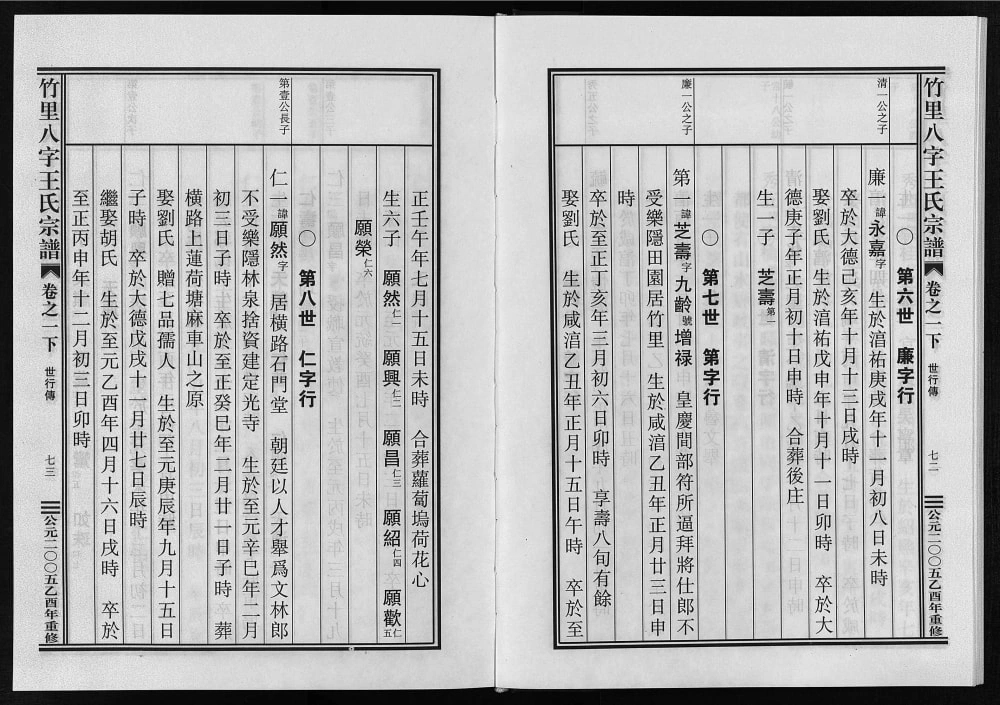 竹里八字王氏宗譜 卷之一下 世行傳 七二 公元二〇〇五乙酉年重修
〇 第六世 廉字行
清一公之子
廉一 諱永嘉 字 生於淯祐庚戌年十一月初八日未時
卒於大德己亥年十月十三日戌時
娶劉氏 生於淯祐戊申年十月十一日卯時 卒於大
德庚子年正月初十日申時 合葬後庄
生一子 芝壽 第一
〇 第七世 第字行
廉一公之子
第一 諱芝壽 字九齡 號增禄 皇慶間部符所逼拜將仕郎不
受樂隱田園居竹里 生於咸淯乙丑年正月廿三日申
時
卒於至正丁亥年三月初六日卯時 享壽八旬有餘
娶劉氏 生於咸淯乙丑年正月十五日午時 卒於至
正壬午年七月十五日未時 合葬蘿蔔塢荷花心
生六子 願然 仁一 願興 仁二 願昌 仁三 願紹 仁四 願歡 仁五
願榮 仁六
〇 第八世 仁字行
第壹公長子
仁一 諱願然 字 居橫路石門堂 朝廷以人才舉爲文林郎
不受樂隱林泉捨資建定光寺 生於至元辛巳年二月
初三日子時 卒於至正癸巳年二月廿一日子時 葬
橫路上蓮荷塘麻車山之原
娶劉氏 贈七品孺人 生於至元庚辰年九月十五日
子時 卒於大德戊戌十一月廿七日辰時
繼娶胡氏 生於至元乙酉年四月十六日戌時 卒於
至正丙申年十二月初三日卯時
竹里八字王氏宗譜 卷之一下 世行傳 七三 公元二〇〇五乙酉年重修